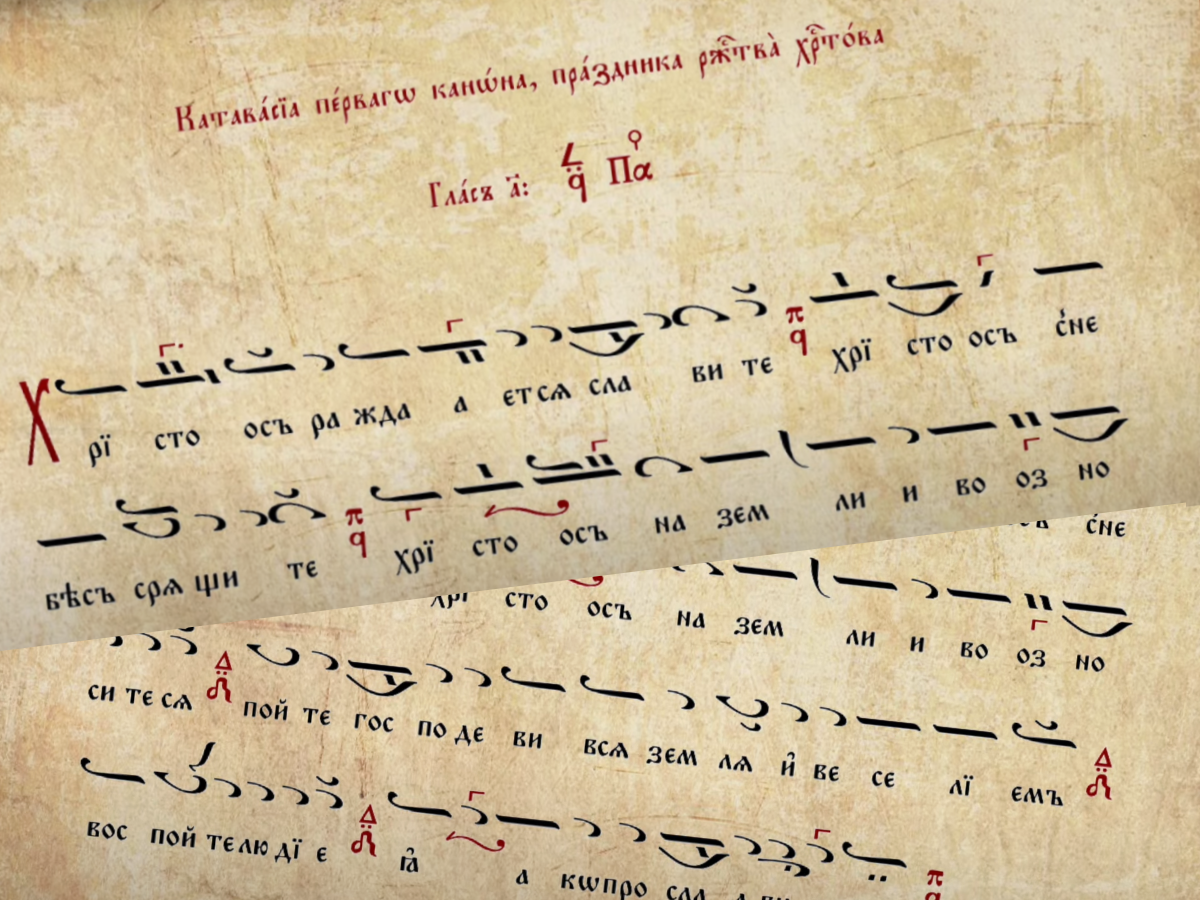 Катава́сїа пе́рвагѡ канѡ́на, пра́здника рж҃тва̀ хр҃то́ва
Гла́съ а҃: Πα
Хрї сто осъ ра жда а єтсѧ сла ви те хрї сто осъ с҃не
бѣсъ срѧ щи те хрї сто осъ на зем ли и во оз но
с҃не
хрї сто осъ на зем ли и во оз но
си те сѧ пой те гос по де ви всѧ зем лѧ и҆ ве се лї емъ
вос пой те лю дї е ꙗ҆ а кѡ про сла